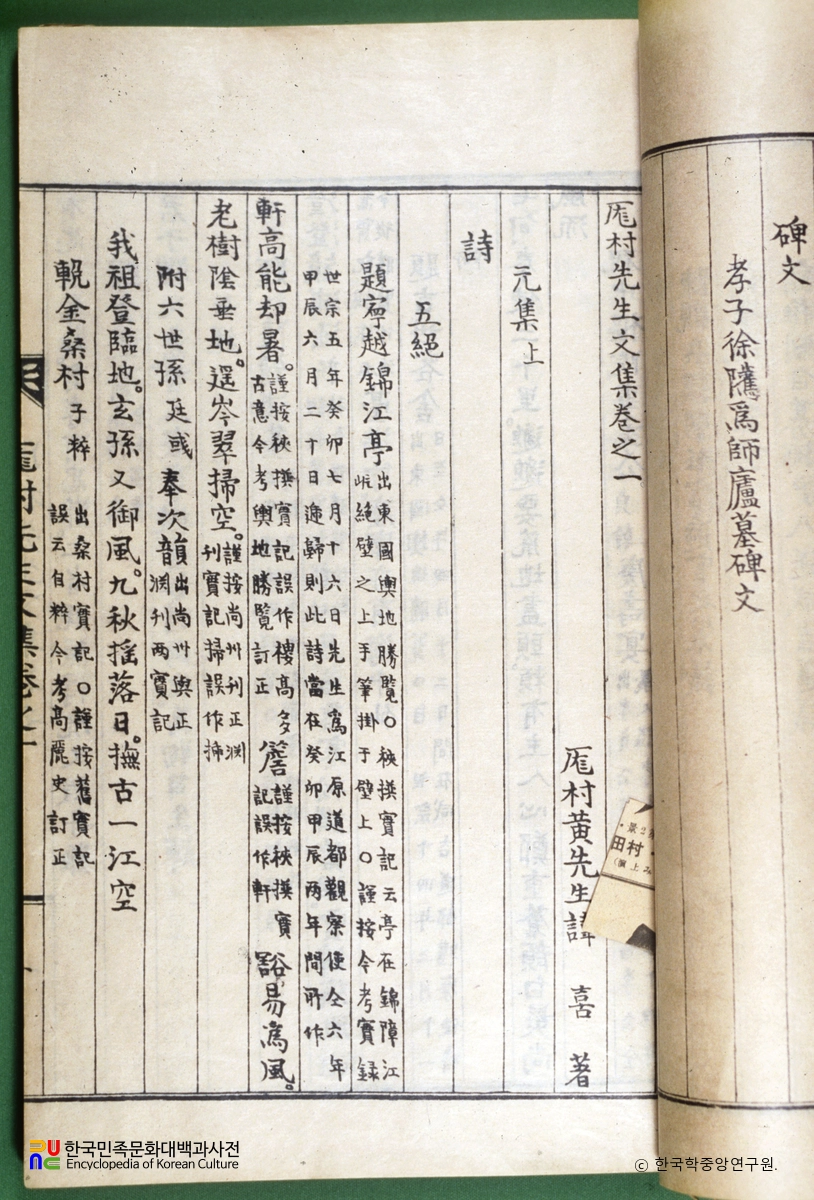 碑文
孝子徐隲爲師廬墓碑文
厖村先生文集卷之一
厖村黃先生諱 喜 著
元集上
詩
五絕
題寧越錦江亭 出東國輿地勝覽○秧撰實記云亭在錦障江
絕壁之上手筆掛于壁上○謹按今考實錄
世宗五年癸卯七月十六日先生爲江原道都觀察使仝六年
甲辰六月二十日遞歸則此詩當在癸卯甲辰两年間所作
軒高能却暑。謹按秧撰實記誤作樓高多
古意今考輿地勝覽訂正
簷 謹按秧撰實
記誤作軒
豁易爲風。
老樹陰垂地。遥岑翠掃空。謹按尚州刋正渊
刋實記掃誤作
附六世孫 廷彧 奉次韻 出尚州輿正
渊刋两實記
我祖登臨地。玄孫又御風。九秋搖落日。撫古一江空
輓金桑村 子粹 出桑村實記○謹按舊實記
誤云自粹今考高麗史訂正
厖村先生文集卷之一
田村
한국민족문화대백과사전
Encyclopedia of Korean Culture
ⓒ 한국학중앙연구원.